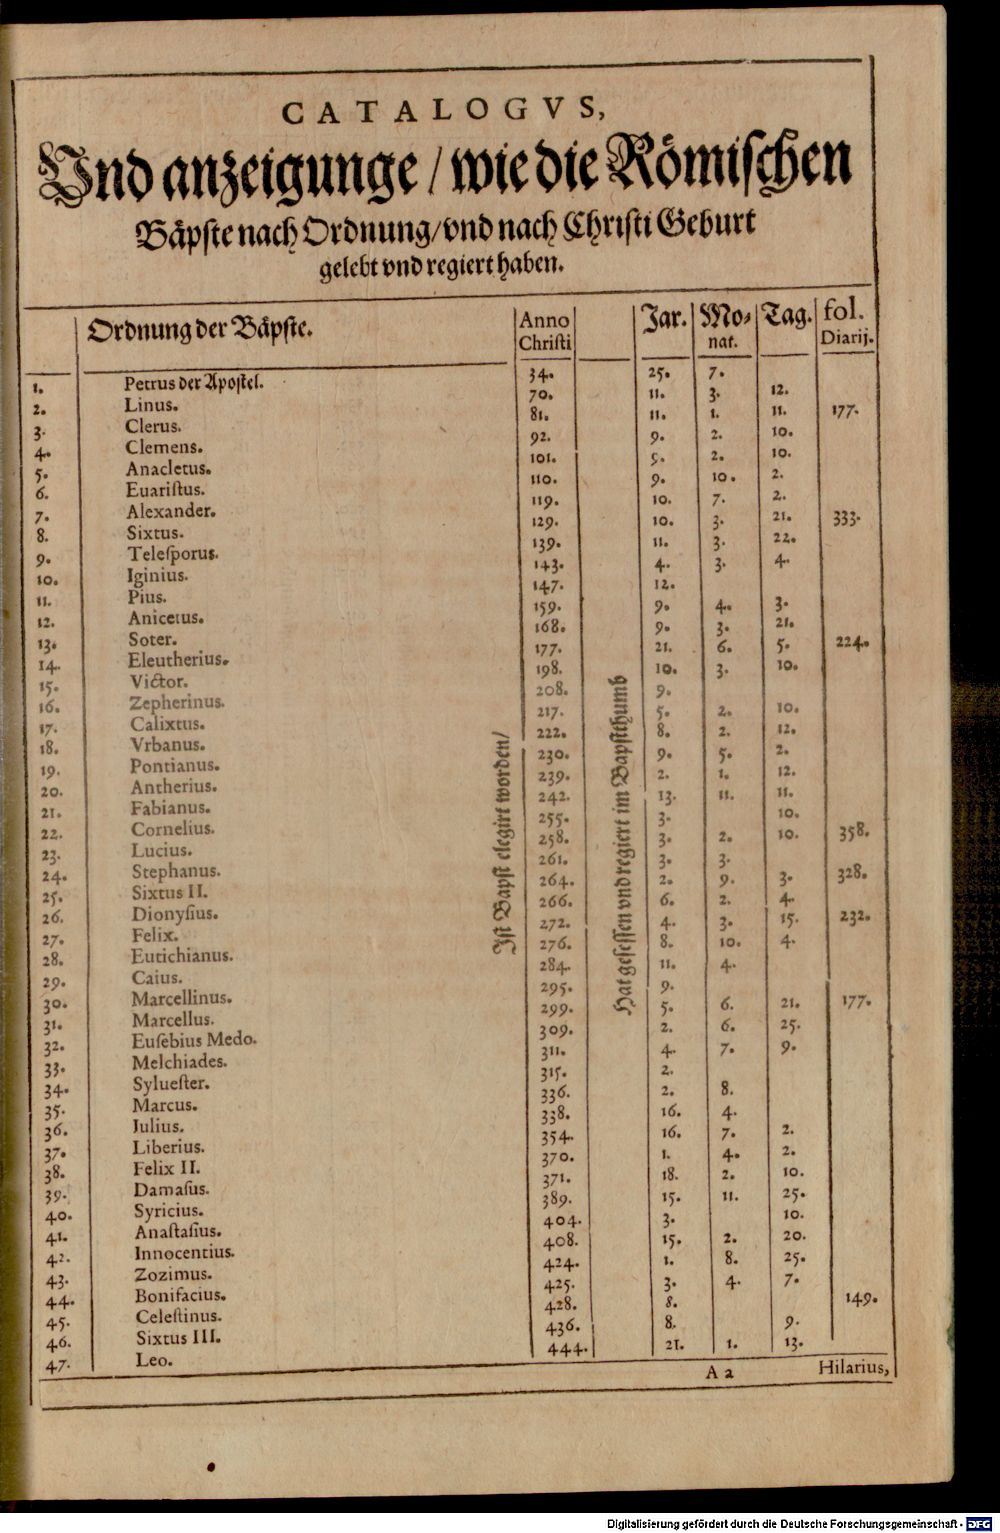 CATALOGVS,
Vnd anzeigunge / wie die Römischen
Bäpste nach Ordnung / vnd nach Christi Geburt
gelebt vnd regiert haben.
Ordnung der Bäpste. Anno Christi Jar. Mo-nat. Tag. fol. Diarij.
Ist Bapst elegirt worden /
Hat gesessen vnd regiert im Bapstthumb
1. Petrus der Apostel. 34. 25. 7.
2. Linus. 70. 11. 3. 12.
3. Clerus. 81. 11. 1. 11. 177.
4. Clemens. 92. 9. 2. 10.
5. Anacletus. 101. 9. 2. 10.
6. Euaristus. 110. 9. 10. 2.
7. Alexander. 119. 10. 7. 2.
8. Sixtus. 129. 10. 3. 21. 333.
9. Telesporus. 139. 11. 3. 22.
10. Iginius. 143. 4. 3. 4.
11. Pius. 147. 12.
12. Anicetus. 159. 9. 4. 3.
13. Soter. 168. 9. 3. 21.
14. Eleutherius. 177. 21. 6. 5. 224.
15. Victor. 198. 10. 3. 10.
16. Zepherinus. 208. 9.
17. Calixtus. 217. 5. 2. 10.
18. Vrbanus. 222. 8. 2. 12.
19. Pontianus. 230. 9. 5. 2.
20. Antherius. 239. 2. 1. 12.
21. Fabianus. 242. 13. 11. 11.
22. Cornelius. 255. 3. 10.
23. Lucius. 258. 3. 2. 10. 358.
24. Stephanus. 261. 3. 3.
25. Sixtus II. 264. 2. 9. 3. 328.
26. Dionysius. 266. 6. 2. 4.
27. Felix. 272. 4. 3. 15. 232.
28. Eutichianus. 276. 8. 10. 4.
29. Caius. 284. 11. 4.
30. Marcellinus. 295. 9.
31. Marcellus. 299. 5. 6. 21. 177.
32. Eusebius Medo. 309. 2. 6. 25.
33. Melchiades. 311. 4. 7. 9.
34. Syluester. 315. 2.
35. Marcus. 336. 2. 8.
36. Julius. 338. 16. 4.
37. Liberius. 354. 16. 7. 2.
38. Felix II. 370. 1. 4. 2.
39. Damasus. 371. 18. 2. 10.
40. Syricius. 389. 15. 11. 25.
41. Anastasius. 404. 3. 10.
42. Innocentius. 408. 15. 2. 20.
43. Zozimus. 424. 1. 8. 25.
44. Bonifacius. 425. 3. 4. 7.
45. Celestinus. 428. 8. 149.
46. Sixtus III. 436. 8. 9.
47. Leo. 444. 21. 1. 13.
A a Hilarius,
Digitalisierung gefördert durch die Deutsche Forschungsgemeinschaft - DFG